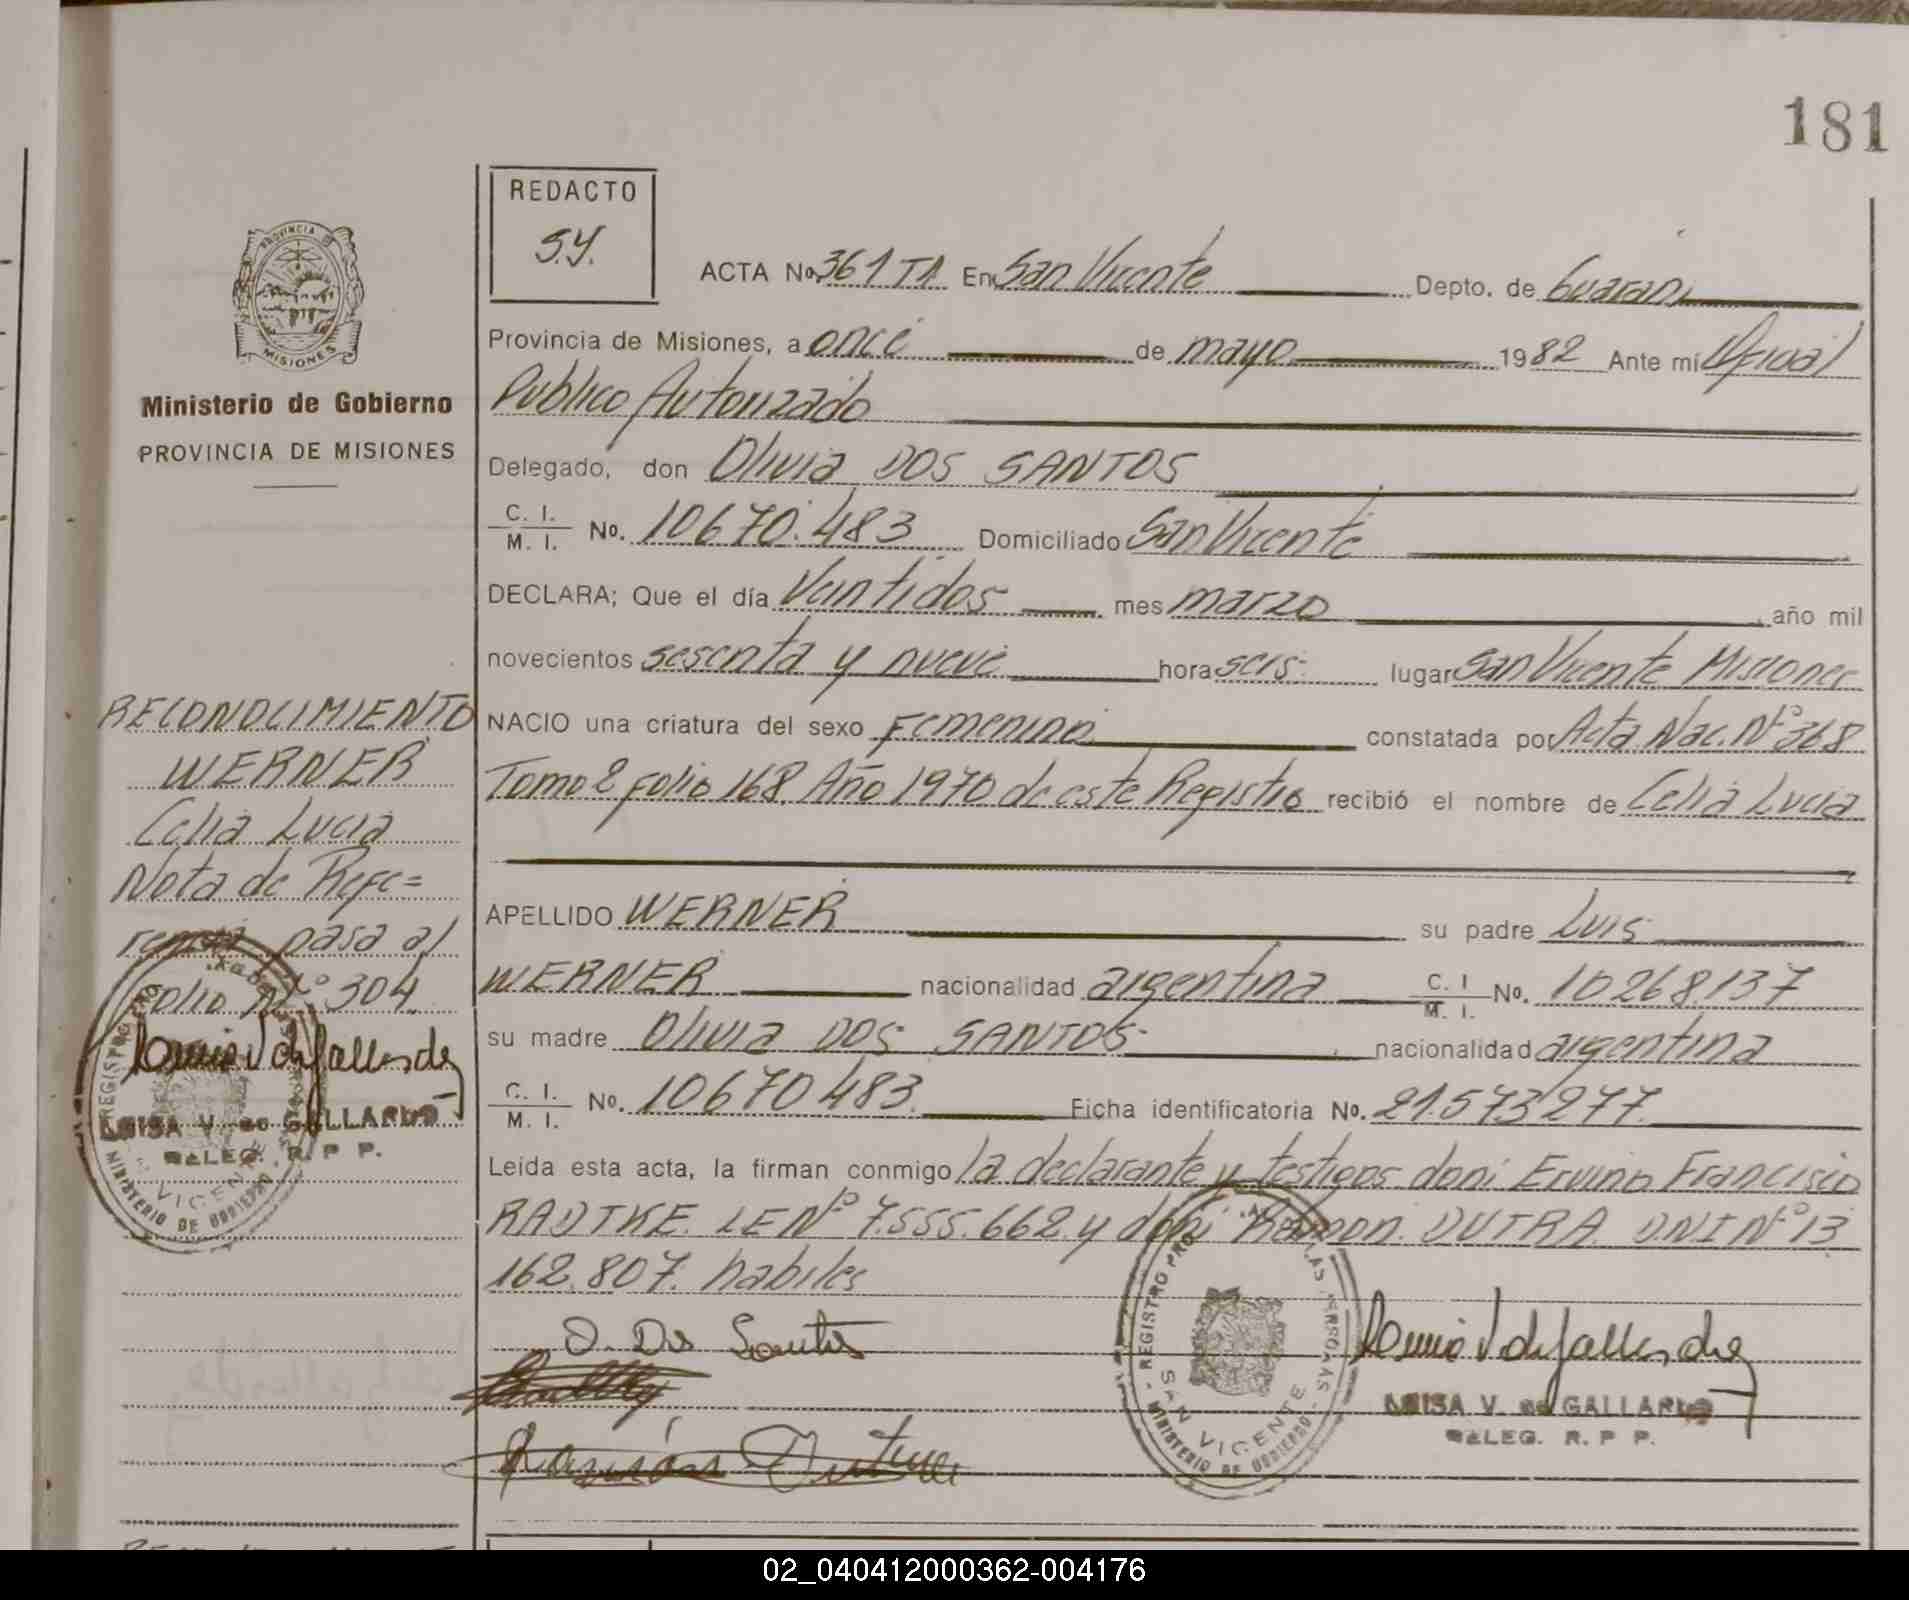 181
REDACTO
S.Y.
PROVINCIA DE
MISIONES
Ministerio de Gobierno
PROVINCIA DE MISIONES
ACTA No. 361 T1 En San Vicente Depto. de Guaraní
Provincia de Misiones, a once de mayo 1982 Ante mí Oficial
Publico Autorizado
Delegado, don Olivia DOS SANTOS
C. I.
M. I. No. 10670.483 Domiciliado San Vicente
DECLARA; Que el día Veintidos mes marzo, año mil
novecientos sesenta y nueve hora seis. lugar San Vicente Misiones
NACIO una criatura del sexo Femenino constatada por Acta Nac. Nº 368
Tomo 2 folio 168. Año 1970 de este Registro recibió el nombre de Celia Lucia
APELLIDO WERNER su padre Luis
WERNER nacionalidad argentina C. I. M. I. No. 10268.137
su madre Olivia DOS SANTOS nacionalidad argentina
C. I.
M. I. No. 10670483. Ficha identificatoria No. 21.573.277.
Leída esta acta, la firman conmigo la declarante y testigos don: Ervino Francisco
RADTKE. LE Nº 7.555.662. y don: Ramon. DUTRA. D.N.I Nº 13.
162.807. habiles
O. Dos Santos
Ramón Dutra
REGISTRO PRO LAS PERSONAS
SAN VICENTE
MINISTERIO DE GOBIERNO
LUISA V. de GALLARDO
DELEG. R. P P.
RECONOCIMIENTO
WERNER
Celia Lucia
Nota de Refe=
rencia pasa al
folio Nº 304.
REGISTRO PRO
VICENTE
MINISTERIO DE GOBIERNO
LUISA V. de GALLARDO
DELEG. R. P P.
02_040412000362-004176